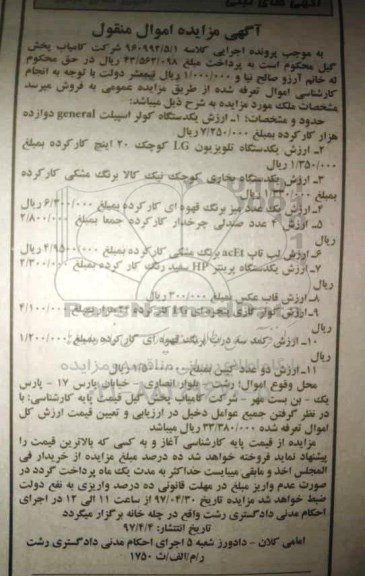 آگهی مزایده اموال منقول
به موجب پرونده اجرایی کلاسه ۹۶۰۹۹۲/۵/۱ شرکت کامیاب پخش
گیل محکوم است به پرداخت مبلغ ۴۳/۵۶۳/۰۹۸ ریال در حق محکوم
له خانم آرزو صالح نیا و ۱/۰۰۰/۰۰۰ ریال نیمعشر دولت با توجه به انجام
کارشناسی اموال تعرفه شده از طریق مزایده عمومی به فروش میرسد
مشخصات ملک مورد مزایده به شرح ذیل میباشد:
حدود و مشخصات: ۱- ارزش یکدستگاه کولر اسپیلت general دوازده
هزار کارکرده بمبلغ ۷/۲۵۰/۰۰۰ ریال
۲- ارزش یکدستگاه تلویزیون LG کوچک ۲۰ اینچ کارکرده بمبلغ
۱/۳۵۰/۰۰۰ ریال
۳- ارزش یکدستگاه بخاری کوچک نیک کالا برنگ مشکی کارکرده
بمبلغ ۱/۲۳۰/۰۰۰ ریال
۴- ارزش یک عدد میز برنگ قهوه ای کارکرده بمبلغ ۶/۳۰۰/۰۰۰ ریال
۵- ارزش ۲ عدد صندلی چرخدار کارکرده جمعا بمبلغ ۲/۸۰۰/۰۰۰
ریال
۶- ارزش لپ تاپ برنگ مشکی کارکرده بمبلغ ریال
۷- ارزش یکدستگاه پرینتر HP سفید رنگ کار کرده بمبلغ ۲/۳۰۰/۰۰۰
ریال
۸- ارزش قاب عکس بمبلغ ۳۰۰/۰۰۰ ریال
۹- ارزش کولر گازی پنجره ای کارکرده بمبلغ ۴/۱۰۰/۰۰۰
ریال
۱۰- ارزش کمد سه درب برنگ قهوه ای کارکرده بمبلغ ۱/۲۰۰/۰۰۰
ریال
۱۱- ارزش دو عدد کپی بمبلغ ریال
محل وقوع اموال: رشت - بلوار انصاری - خیابان پارس ۱۷ - پارس
یک - بن بست مهر - شرکت کامیاب پخش گیل قیمت پایه کارشناسی: با
در نظر گرفتن جمیع عوامل دخیل در ارزیابی و تعیین قیمت ارزش کل
اموال تعرفه شده ۳۳/۳۸۰/۰۰۰ ریال میباشد
مزایده از قیمت پایه کارشناسی آغاز و به کسی که بالاترین قیمت را
پیشنهاد نماید فروخته خواهد شد ده درصد مبلغ مزایده از خریدار فی
المجلس اخذ و مابقی میبایست حداکثر به مدت یک ماه پرداخت گردد در
صورت عدم واریز مبلغ در مهلت قانونی ده درصد واریزی به نفع دولت
ضبط خواهد شد مزایده تاریخ ۹۷/۰۴/۳۰ از ساعت ۱۱ الی ۱۲ در اجرای
احکام مدنی دادگستری رشت واقع در چله خانه برگزار میگردد
تاریخ انتشار: ۹۷/۴/۴
امامی کلان - دادورز شعبه ۵ اجرای احکام مدنی دادگستری رشت
ر/م/الف/ث ۱۷۵۰